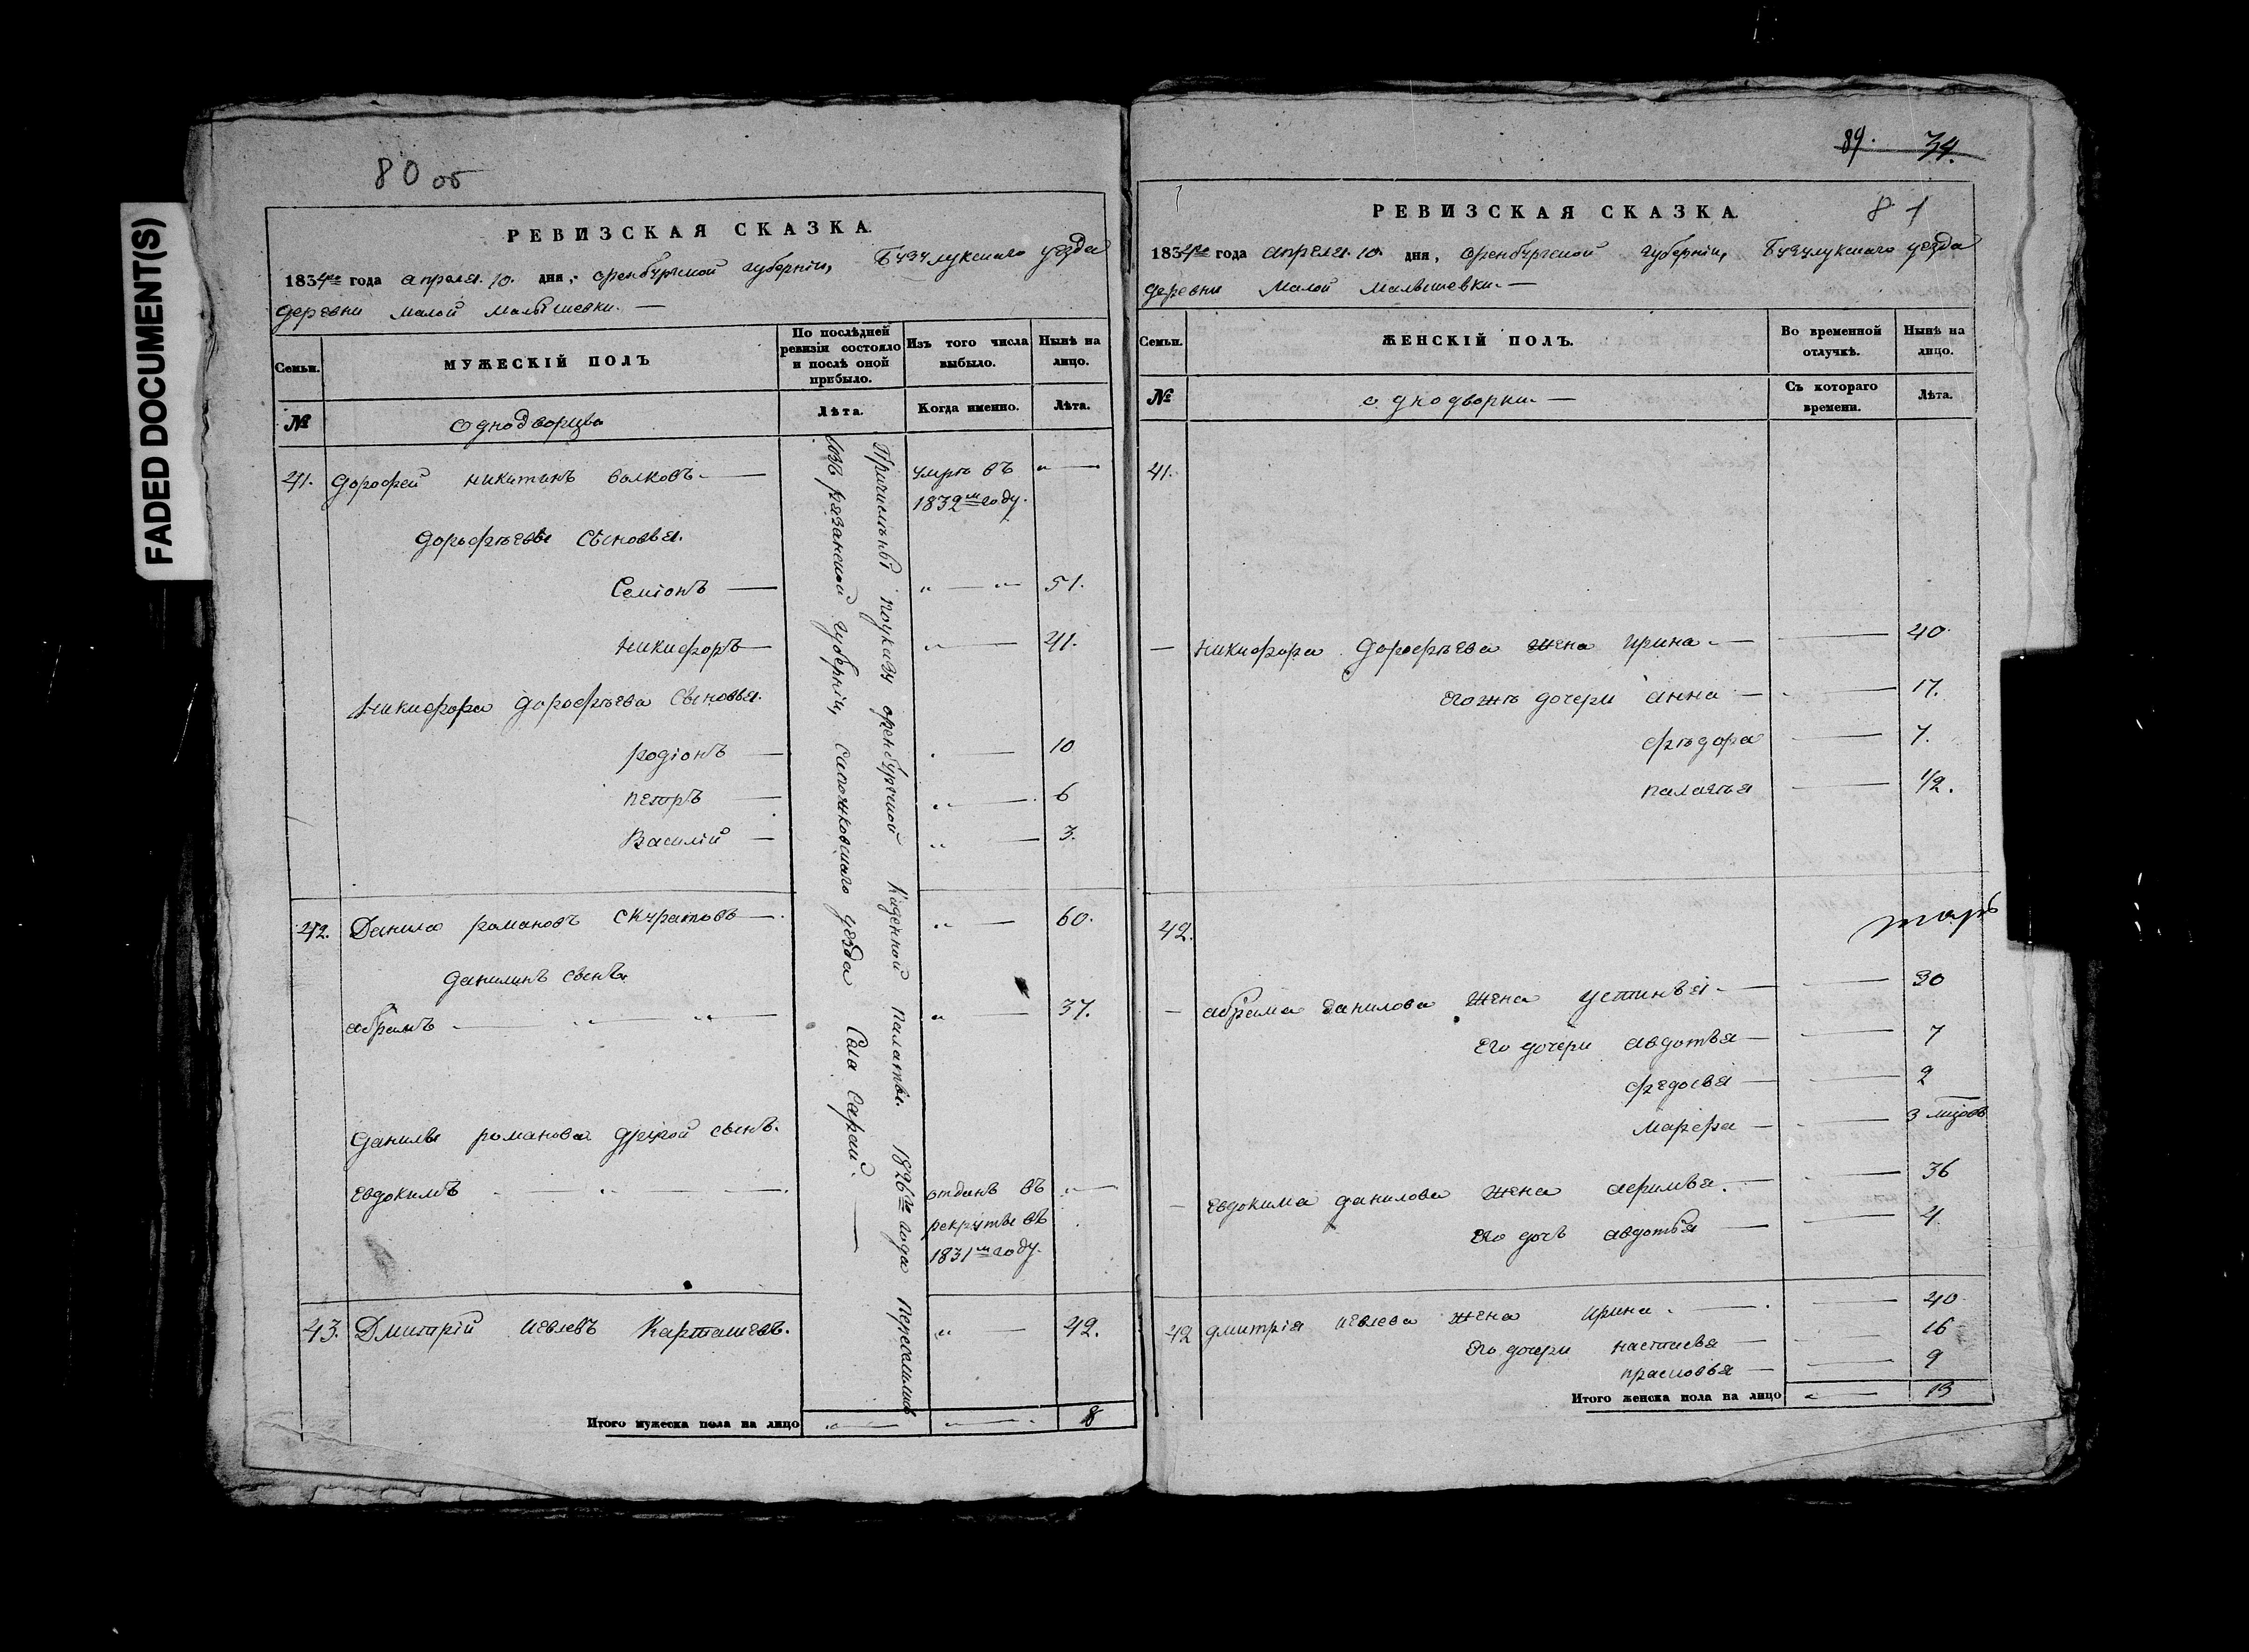 FADED DOCUMENT(S)
80 об
РЕВИЗСКАЯ СКАЗКА.
1834го года апреля 10. дня, оренбургской губернии, Бузулукскаго уезда
деревни малой малышевки. —
Семьи.
МУЖЕСКІЙ ПОЛЪ
По послѣдней ревизіи состояло и послѣ оной прибыло.
Изъ того числа выбыло.
Нынѣ на лицо.
№
однодворцы
Лѣта.
Когда именно.
Лѣта.
Причислены поуказу оренбургской Казенной палаты. 1826го года переселились
изъ рязанской губерніи, сапожковскаго уезда Села Сараи. —
41. дорофей никитинъ волковъ. — умре въ " —
1832м году.
дорофѣевы сыновья.
Семіонъ — " — " 51.
никифоръ — " — 41.
никифора дорофѣева сыновья.
родіонъ — — 10
петръ — " — 6
Василій — " — 3.
42. Данила романовъ скуратовъ — " — 60.
данилинъ сынъ.
абрамъ — " — 37.
данилы романова другой сынъ.
евдокимъ — отданъ въ " —
рекруты въ
1831м году.
43. Дмитрій иевлевъ Карташевъ. " — 42.
Итого мужеска пола на лицо " — " — 8
89. 34.
81
РЕВИЗСКАЯ СКАЗКА.
1834го года апреля 10. дня, оренбургской губерніи, Бузулукскаго уезда
деревни малой малышевки. —
Семьи.
ЖЕНСКІЙ ПОЛЪ.
Во временной отлучкѣ.
Нынѣ на лицо.
№
однодворки —
Съ котораго времени.
Лѣта.
41.
— никифора дорофѣева жена ирина — — 40
егожъ дочери анна — — 17.
фѣдора — 7.
палагѣя — 1/2.
42.
— абрама данилова жена устинья — — 30
его дочери авдотья — — 7
федосья — — 2
марфа — — 3 мцовъ
— евдокима данилова жена афимья. — — 36
его дочь авдотья — — 4
42 дмитрія иевлева жена ирина. — — 40
его дочери настасья — 16
прасковья — — 9
Итого женска пола на лицо " — 13